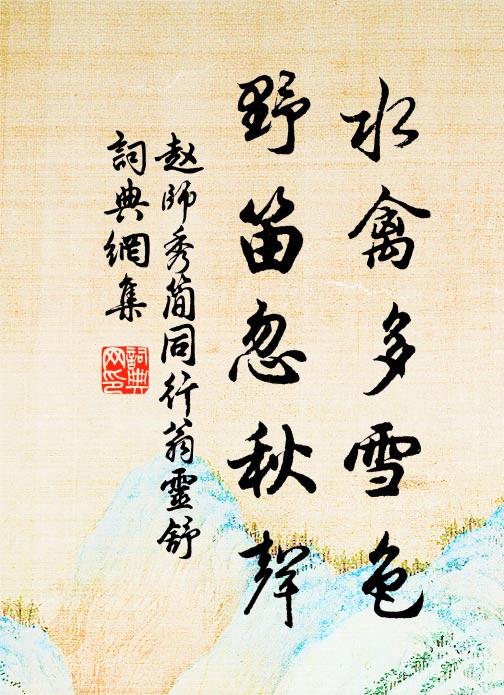 水禽多雪色
野笛忽秋聲
赵師秀簡同行翁靈舒
詞典網集
詞典网印